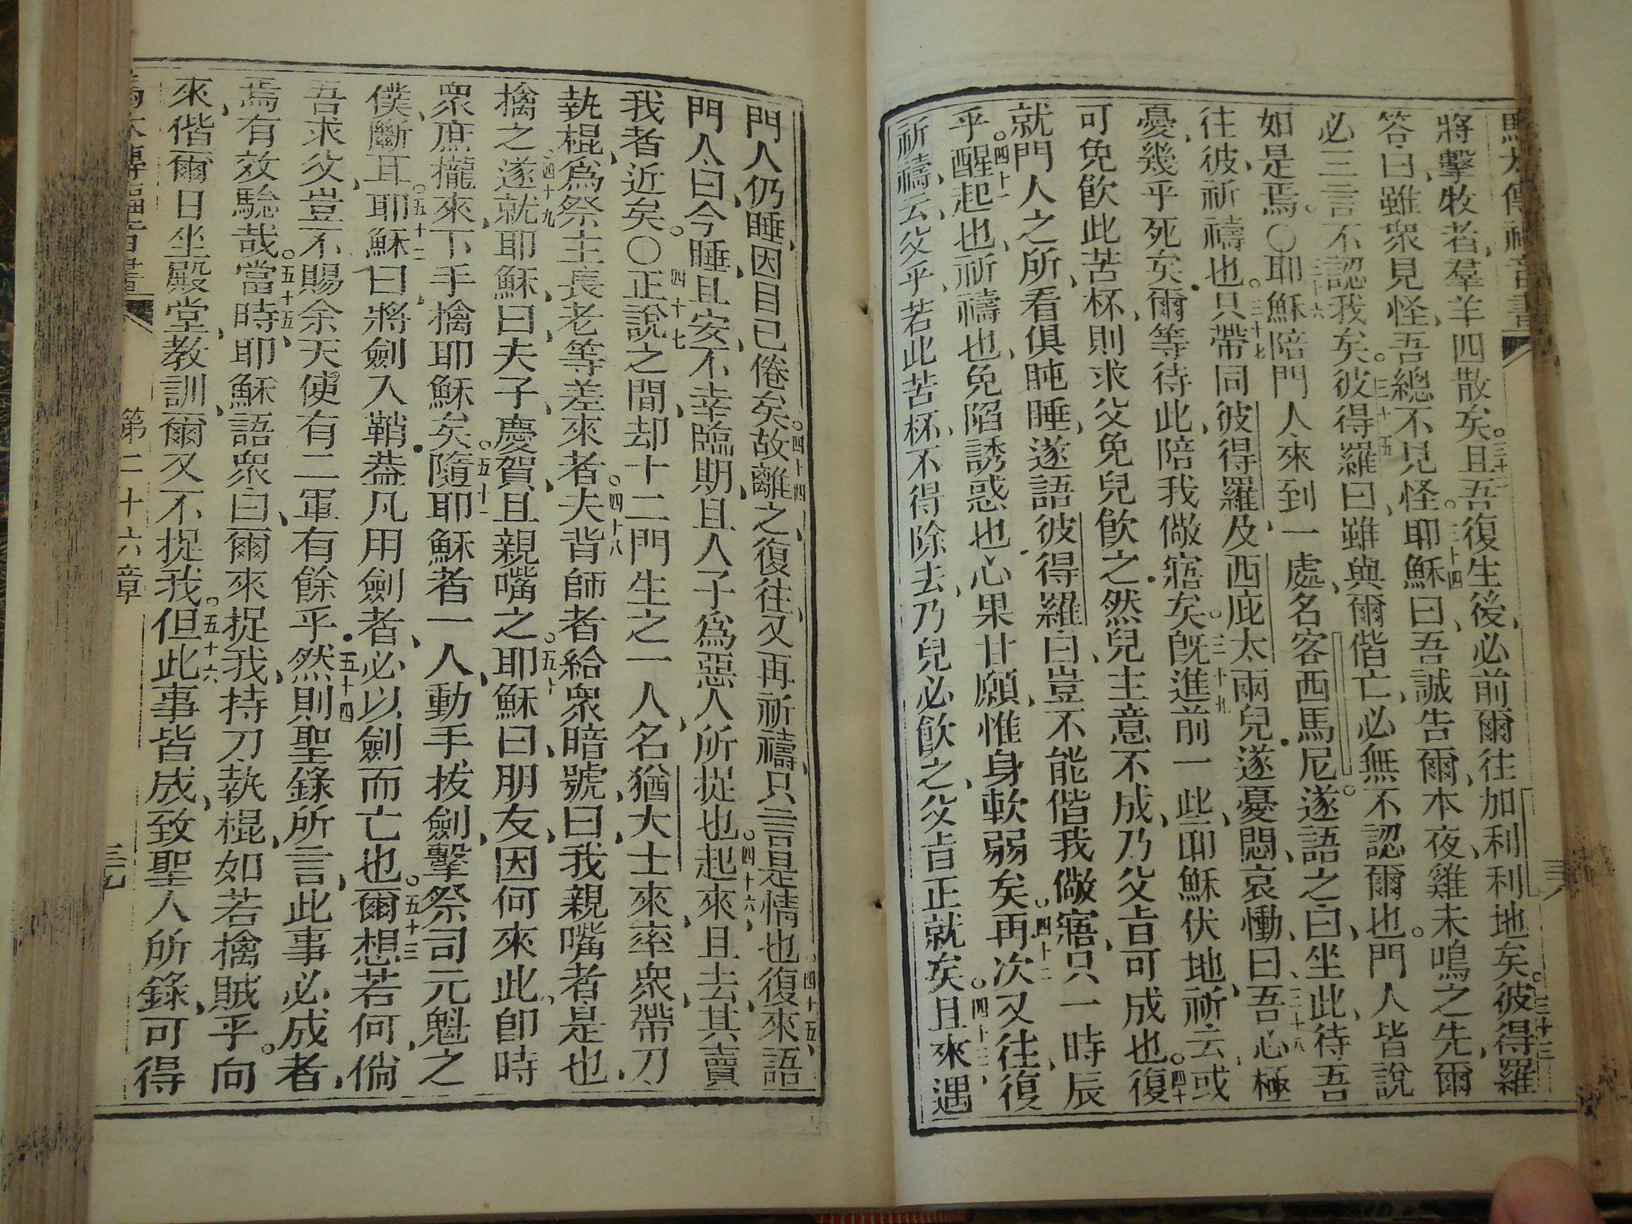 馬太傳福音書
將擊牧者羣羊四散矣三十二且吾復生後必前爾往加利利地矣三十三彼得羅
答曰雖眾見怪吾總不見怪三十四耶穌曰吾誠告爾本夜雞未鳴之先爾
必三言不認我矣三十五彼得羅曰雖與爾偕亡必無不認爾也門人皆說
如是焉○三十六耶穌陪門人來到一處名客西馬尼遂語之曰坐此待吾
往彼祈禱也三十七只帶同彼得羅及西庇太兩兒遂憂悶哀慟曰三十八吾心極
憂幾乎死矣爾等待此陪我儆寤矣三十九既進前一些耶穌伏地祈云或
可免飲此苦杯則求父免兒飲之然兒主意不成乃父旨可成也四十復
就門人之所看俱盹睡遂語彼得羅曰豈不能偕我儆寤只一時辰
乎四十一醒起也祈禱也免陷誘惑也心果甘願惟身軟弱矣四十二再次又往復
祈禱云父乎若此苦杯不得除去乃兒必飲之父旨正就矣四十三且來遇
門人仍睡因目已倦矣四十四故離之復往又再祈禱只言是情也四十五復來語
門人曰今睡且安不幸臨期且人子為惡人所捉也四十六起來且去其賣
我者近矣○四十七正說之間却十二門生之一人名猶大士來率眾帶刀
執棍為祭主長老等差來者四十八夫背師者給眾暗號曰我親嘴者是也
擒之四十九遂就耶穌曰夫子慶賀且親嘴之五十耶穌曰朋友因何來此卽時
眾庶攏來下手擒耶穌矣五十一隨耶穌者一人動手拔劍擊祭司元魁之
僕斷耳五十二耶穌曰將劍入鞘葢凡用劍者必以劍而亡也五十三爾想若何倘
吾求父豈不賜余天使有二軍有餘乎五十四然則聖錄所言此事必成者
焉有效騐哉五十五當時耶穌語眾曰爾來捉我持刀執棍如若擒賊乎向
來偕爾日坐殿堂教訓爾又不捉我五十六但此事皆成致聖人所錄可得
馬太傳福音書
第二十六章